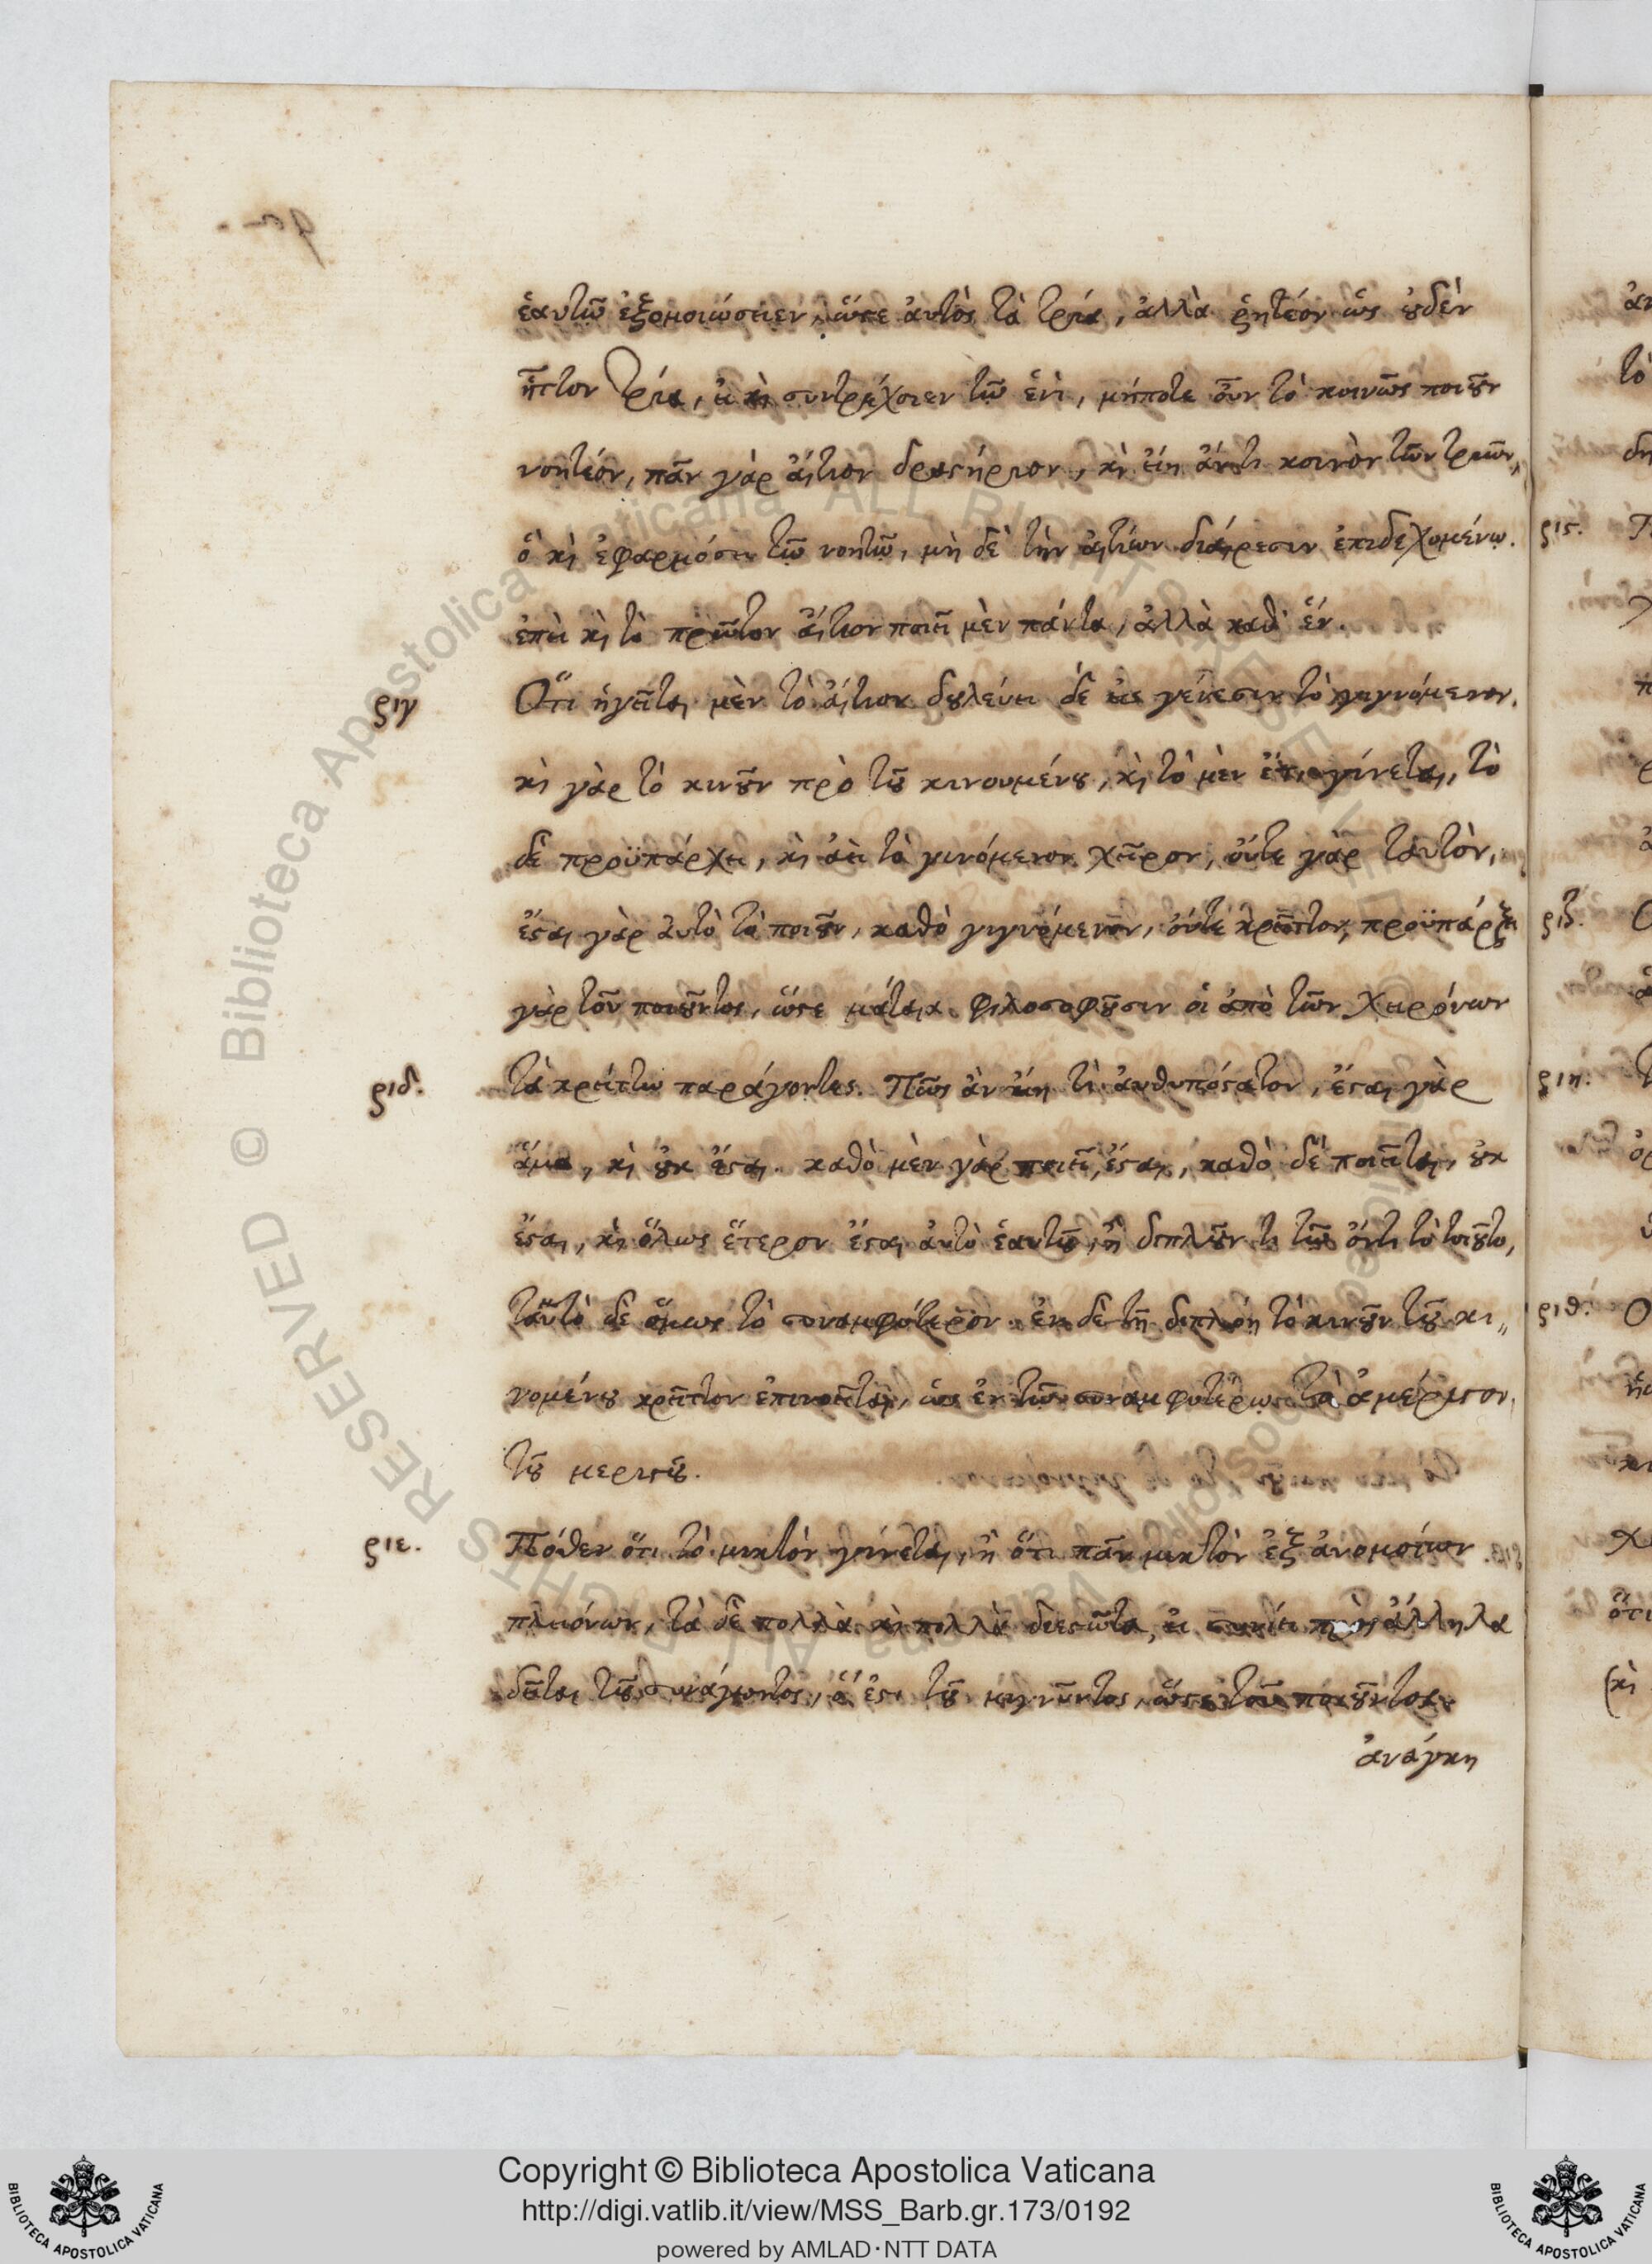 ἑαυτῷ ἐξομοιώσειεν, ὥστε ἀυτὸς τὰ τρία, ἀλλὰ ῥητέον ὡς οὐδὲν
ἧττον τρία, εἰ καὶ συντρέχοιεν τῷ ἑνὶ, μήποτε οὖν τὸ κοινῶς ποιοῦν
νοητέον, πᾶν γὰρ ἄιτιον δραστήριον, καὶ εἴη ἄν τι κοινὸν τῶν τριῶν,
ὃ καὶ ἐφαρμόσει τῷ νοητῷ, μὴ δὲ τὴν ἀιτίων διάιρεσιν ἐπιδεχομένῳ.
ἐπεὶ καὶ τὸ πρῶτον ἄιτιον ποιεῖ μὲν πάντα, ἀλλὰ καθ' ἕν.
ριγ Ὅτι ἡγεῖται μὲν τὸ ἄιτιον δουλεύει δὲ εἰς γένεσιν τὸ γιγνόμενον.
καὶ γὰρ τὸ κινοῦν πρὸ τοῦ κινουμένου, καὶ τὸ μὲν ἔτι γίνεται, τὸ
δὲ προϋπάρχει, καὶ ἀεὶ τὸ γινόμενον χεῖρον, οὔτε γὰρ ταυτὸν,
ἔσται γὰρ ἀυτὸ τὸ ποιοῦν, καθὸ γιγνόμενον, οὔτε κρεῖττον, προϋπάρξει
γὰρ τοῦ ποιοῦντος, ὥστε μάταια φιλοσοφοῦσιν οἱ ἀπὸ τῶν χειρόνων
ριδ. τὰ κρείττω παράγοντες. Πῶς ἂν εἴη τὶ ἀυθυπόστατον, ἔσται γὰρ
ἅμα, καὶ οὐκ ἔσται. καθὸ μὲν γὰρ ποιεῖ, ἔσται, καθὸ δὲ ποιεῖται, οὐκ
ἔσται, καὶ ὅλως ἕτερον ἔσται ἀυτὸ ἑαυτοῦ, ἢ διπλοῦν τι τῷ ὄντι τὸ τοιοῦτο,
ταὐτὸ δὲ ὅμως τὸ συναμφότερον. ἐν δὲ τῇ διπλόῃ τὸ κινοῦν τοῦ κι„
νομένου κρεῖττον ἐπινοεῖται, ὡς ἐν τῷ συναμφοτέρῳ τὸ ἀμέριστον,
τοῦ μεριστοῦ.
ριε. Πόθεν ὅτι τὸ μικτὸν γίνεται, ἢ ὅτι πᾶν μικτὸν ἐξ ἀνομοίων
πλειόνων, τὰ δὲ πολλὰ καὶ πολλὰ διεστῶτα, εἰ συνίοι πρὸς ἄλληλα
δεῖται τοῦ συνάγοντος, ὅ ἐστι τοῦ μιγνῦντος, ὥστε τοῦ ποιοῦντος.
ἀνάγκη
Copyright © Biblioteca Apostolica Vaticana
http://digi.vatlib.it/view/MSS_Barb.gr.173/0192
powered by AMLAD·NTT DATA